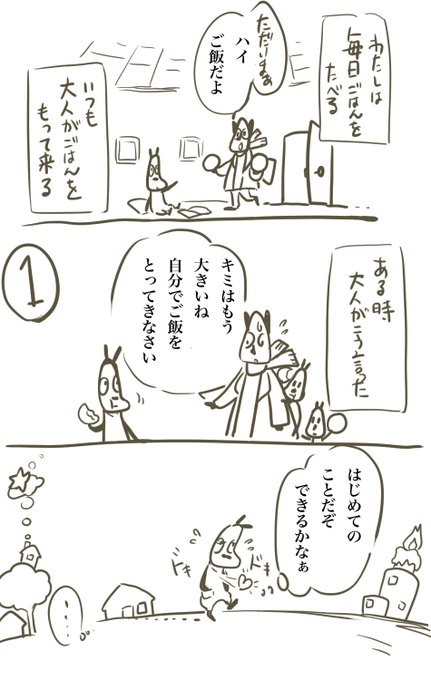 わたしは
毎日ごはんを
たべる
ただいまぁ
ハイ
ご飯だよ
いつも
大人がごはんを
もって来る
1
ある時
大人がこう言った
キミはもう
大きいね
自分でご飯を
とってきなさい
はじめての
ことだぞ
できるかなぁ
ドキ
ドキ
…